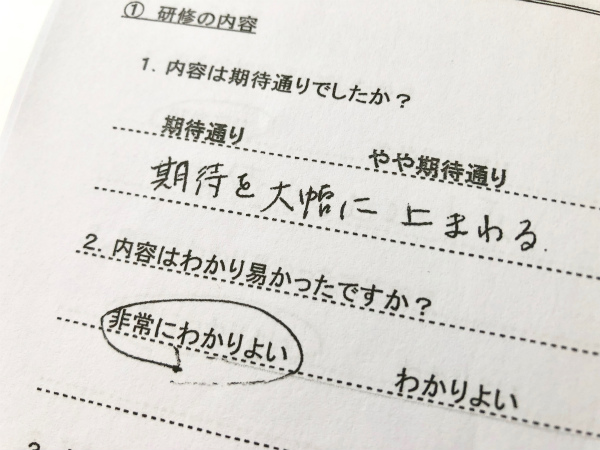 ① 研修の内容
1. 内容は期待通りでしたか？
期待通り やや期待通り
期待を大幅に上まわる.
2. 内容はわかり易かったですか？
非常にわかりよい わかりよい
3.